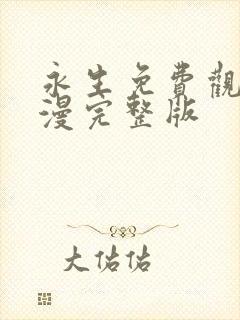 永生免費觀
漫完整版
大佑佑